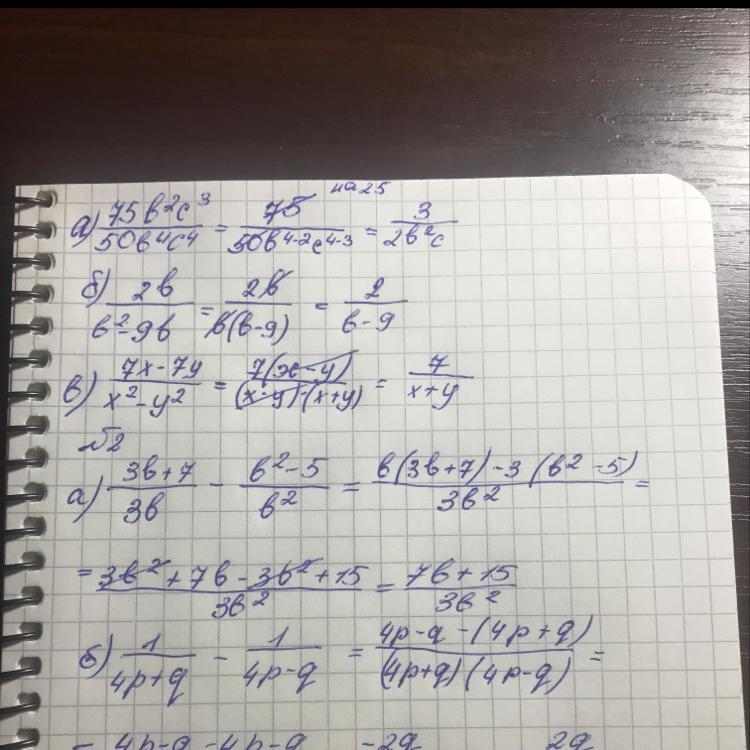 на 25
а) 75b²c³/50b⁴c⁴ = 75/50b⁴⁻²c⁴⁻³ = 3/2b²c
б) 2b/b²-9b = 2b/b(b-9) = 2/b-9
в) 7x-7y/x²-y² = 7(x-y)/(x-y)·(x+y) = 7/x+y
№2
а) 3b+7/3b - b²-5/b² = b(3b+7)-3(b²-5)/3b² =
= 3b²+7b-3b²+15/3b² = 7b+15/3b²
б) 1/4p+q - 1/4p-q = 4p-q-(4p+q)/(4p+q)(4p-q) =
= 4p-q-4p-q -2q 2q